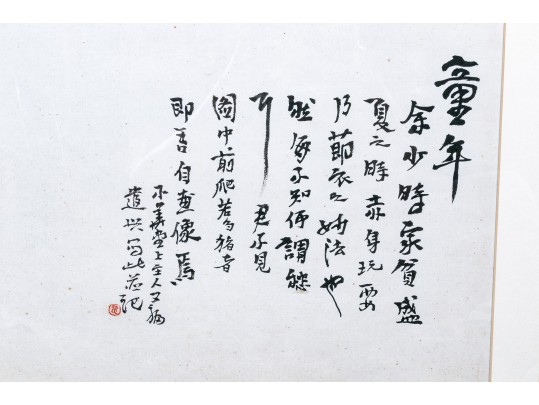 童年
余少時家貧盛
夏之時赤身玩耍
乃節衣之妙法也
然不知何謂
耳君不見
圖中前爬若豬者
即吾自畫像焉
上主人又
遣興寫此并記